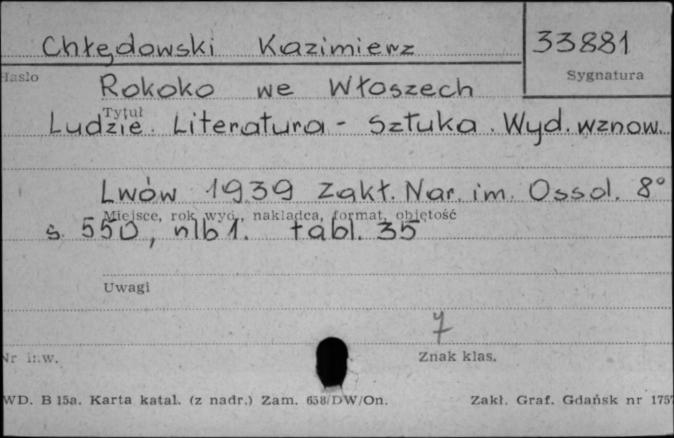 Chłędowski Kazimierz 33881
Hasło Sygnatura
Rokoko we Włoszech
Tytuł
Ludzie. Literatura - Sztuka. Wyd. wznow.
Lwów 1939 Zakł. Nar. im. Ossol. 8°
Miejsce, rok wyd., nakładca, format, objętość
s. 550, nlb 1. tabl. 35
Uwagi
7
Nr inw. Znak klas.
WD. B 15a. Karta katal. (z nadr.) Zam. 658/DW/On. Zakł. Graf. Gdańsk nr 1757